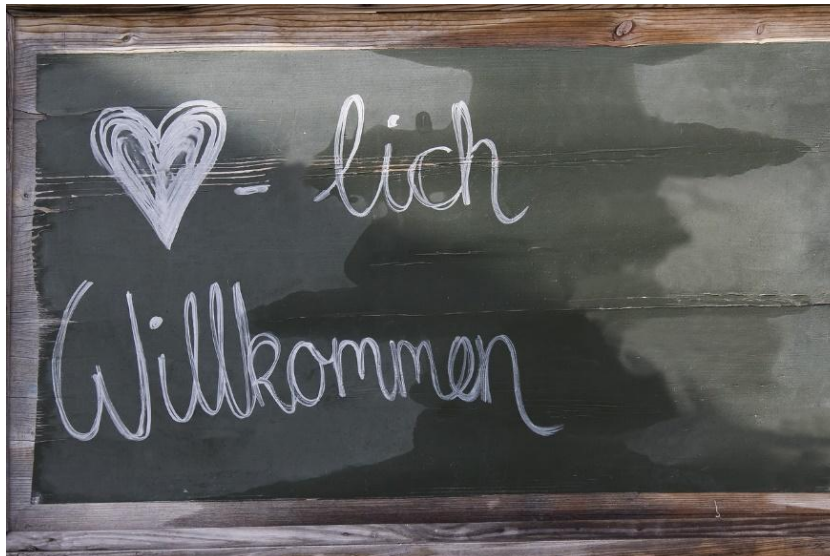 ♥- lich
Willkommen